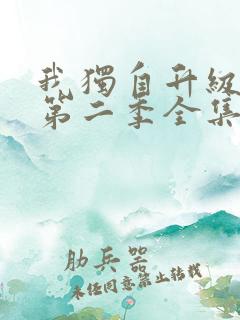 我獨自升級
第二季全集
肋兵器
未经同意禁止转载